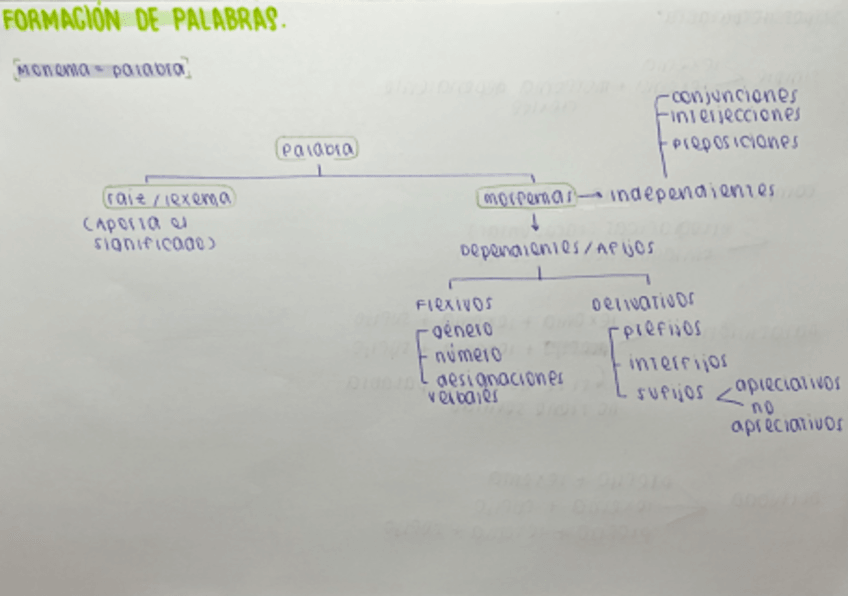 FORMACIÓN DE PALABRAS.
[Monema = palabra]
conjunciones
interjecciones
preposiciones
Palabra
raiz / lexema
morfemas → independientes
(Aporta el
significado)
Dependientes / Afijos
Flexivos
Derivativos
género
prefijos
número
interfijos
designaciones
verbales
sufijos
apreciativos
no
apreciativos